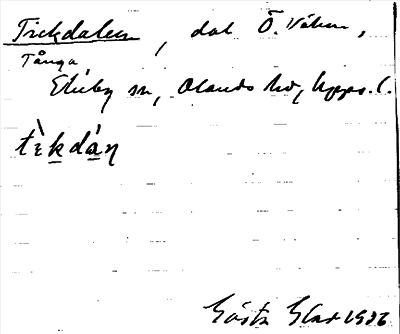 Tickdalen, dal Ö. Våhn,
Tånga
Ekeby sn, Olands hd, Upps. l.
tɩ̀kdán
Gösta Elar 1936